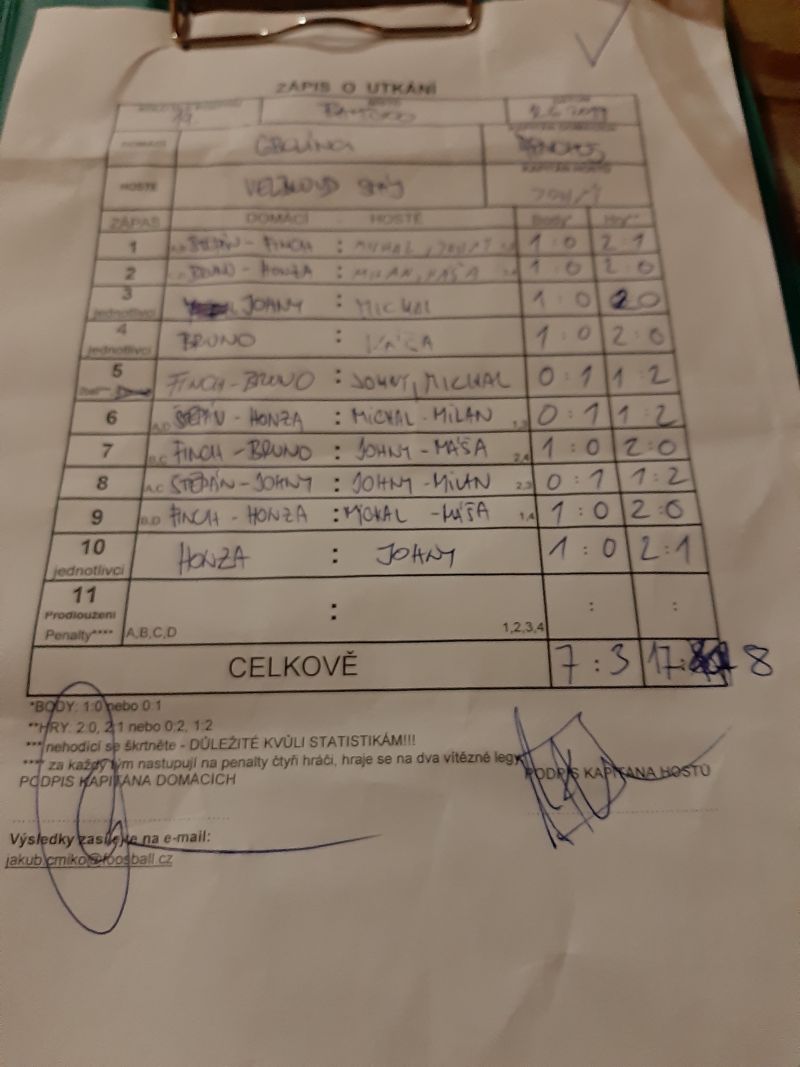 ZÁPIS O UTKÁNÍ
DOMÁCÍ
HOSTÉ
ZÁPAS DOMÁCÍ : HOSTÉ Body* Hry**
1 ŠTĚPÁN - FINCH : MICHAL, 1 : 0 2 : 1
2 BRUNO - HONZA : MILAN, MÁŠA 1 : 0 2 : 0
3 jednotlivci JOHNY : MICHAL 1 : 0 2 0
4 jednotlivci BRUNO : MÁŠA 1 : 0 2 : 0
5 FINCH - BRUNO : JOHNY, MICHAL 0 : 1 1 : 2
6 A,D ŠTĚPÁN - HONZA : MICHAL - MILAN 1,3 0 : 1 1 : 2
7 B,C FINCH - BRUNO : JOHNY - MÁŠA 2,4 1 : 0 2 : 0
8 A,C ŠTĚPÁN - JOHNY : JOHNY - MILAN 2,3 0 : 1 1 : 2
9 B,D FINCH - HONZA : MICHAL - MÁŠA 1,4 1 : 0 2 : 0
10 jednotlivci HONZA : JOHNY 1 : 0 2 : 1
11 Prodloužení Penalty**** A,B,C,D : 1,2,3,4 : :
CELKOVĚ 7 : 3 17 : 8
*BODY: 1:0 nebo 0:1
**HRY: 2:0, 2:1 nebo 0:2, 1:2
*** nehodící se škrtněte - DŮLEŽITÉ KVŮLI STATISTIKÁM!!!
**** za každý tým nastupují na penalty čtyři hráči, hraje se na dva vítězné legy
PODPIS KAPITÁNA DOMÁCÍCH PODPIS KAPITÁNA HOSTŮ
Výsledky zasílejte na e-mail:
jakub.cmiko@foosball.cz